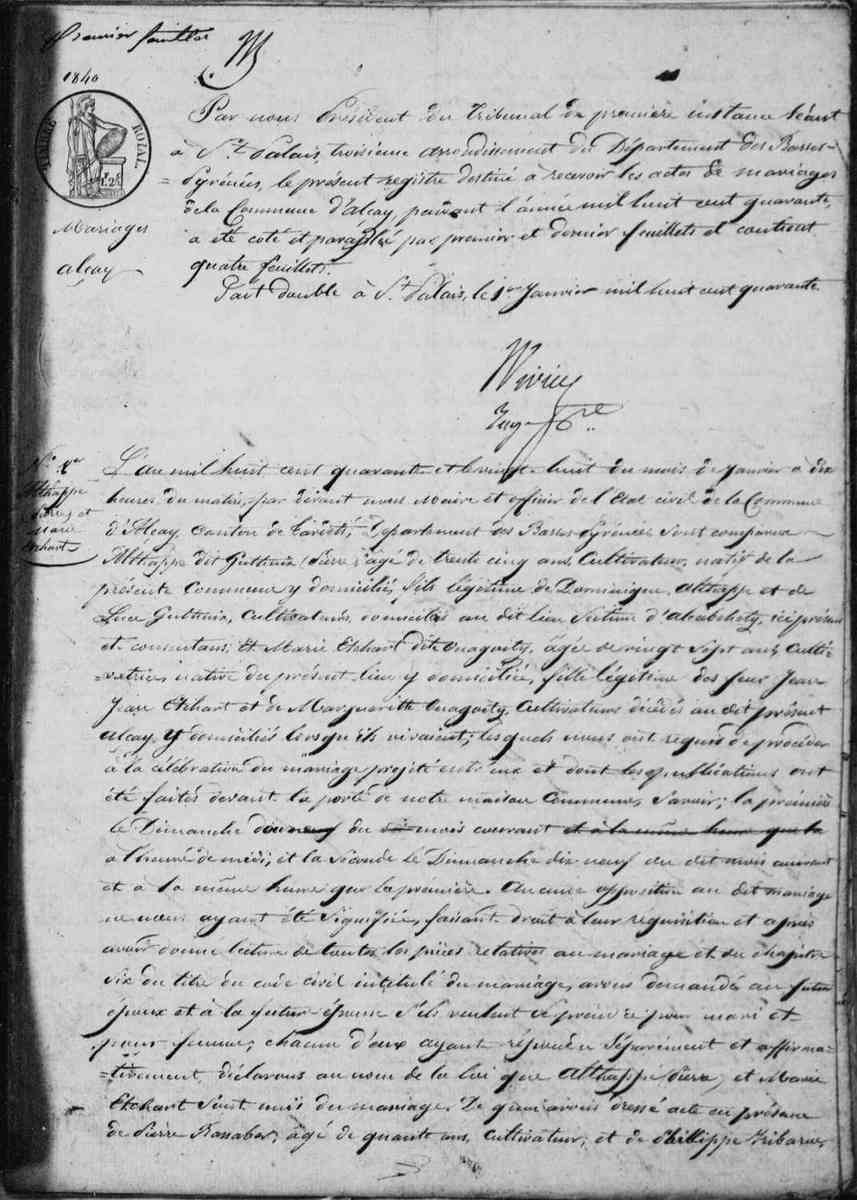 Premier feuillet
1840
TIMBRE ROYAL
Mariages
alçay
Par nous Président du Tribunal de première instance séant
à St. Palais, troisième arrondissement du Département des Basses-
=Pyrénées, le présent registre destiné à recevoir les actes de mariages
de la Commune d'alçay, pendant l'année mil huit cent quarante,
a été coté et paraphé par premier et dernier feuillets et contient
quatre feuillets.
Fait double à St. Palais, le 1er Janvier mil huit cent quarante.
No. 1er
Althappe
Pierre et
Marie
Etchart
L'an mil huit cent quarante et le vingt-huit du mois de Janvier à dix
heures du matin, par devant nous Maire et officier de l'Etat civil de la Commune
d'Alçay, Canton de Tardets, Département des Basses Pyrénées sont comparus
Althappe dit Guthenix (Pierre) âgé de trente cinq ans, Cultivateur, natif de la
présente Commune y domicilié, fils légitime de Dominique Althappe et de
Luce Guthenix, cultivateurs, domiciliés au dit lieu d'Alçabehety, ici présens
et consentans; Et Marie Etchart dite Onagoity, âgée de vingt sept ans, Culti-
=vatrice, native du présent lieu y domiciliée, fille légitime des feux Jean
Jean Etchart et de Marguerithe Onagoity, Cultivateurs décédés au dit présent
alçay, y domiciliés lorsqu'ils vivaient; lesquels nous ont requis de procéder
à la célébration du mariage projeté entr'eux et dont les publications ont
été faites devant la porte de notre maison Commune, Savoir; la première
le Dimanche douze du dit mois courant et à la même heure que la
à l'heure de midi, et la seconde le Dimanche dix neuf du dit mois courant
et à la même heure que la première. Aucune opposition au dit mariage
ne nous ayant été signifiée, faisant droit à leur requisition et après
avoir donné lecture de toutes les pièces relatives au mariage et du chapitre
six du titre du code civil intitulé du mariage, avons demandé au futur
époux et à la future épouse s'ils veulent se prendre pour mari et
pour femme; chacun d'eux ayant répondu séparément et affirma-
=tivement, déclarons au nom de la loi que Althappe Pierre, et Marie
Etchart sont unis du mariage. De quoi avons dressé acte en présence
de Pierre Bassabar, âgé de quante ans, cultivateur, et de Phillippe Iribarne,